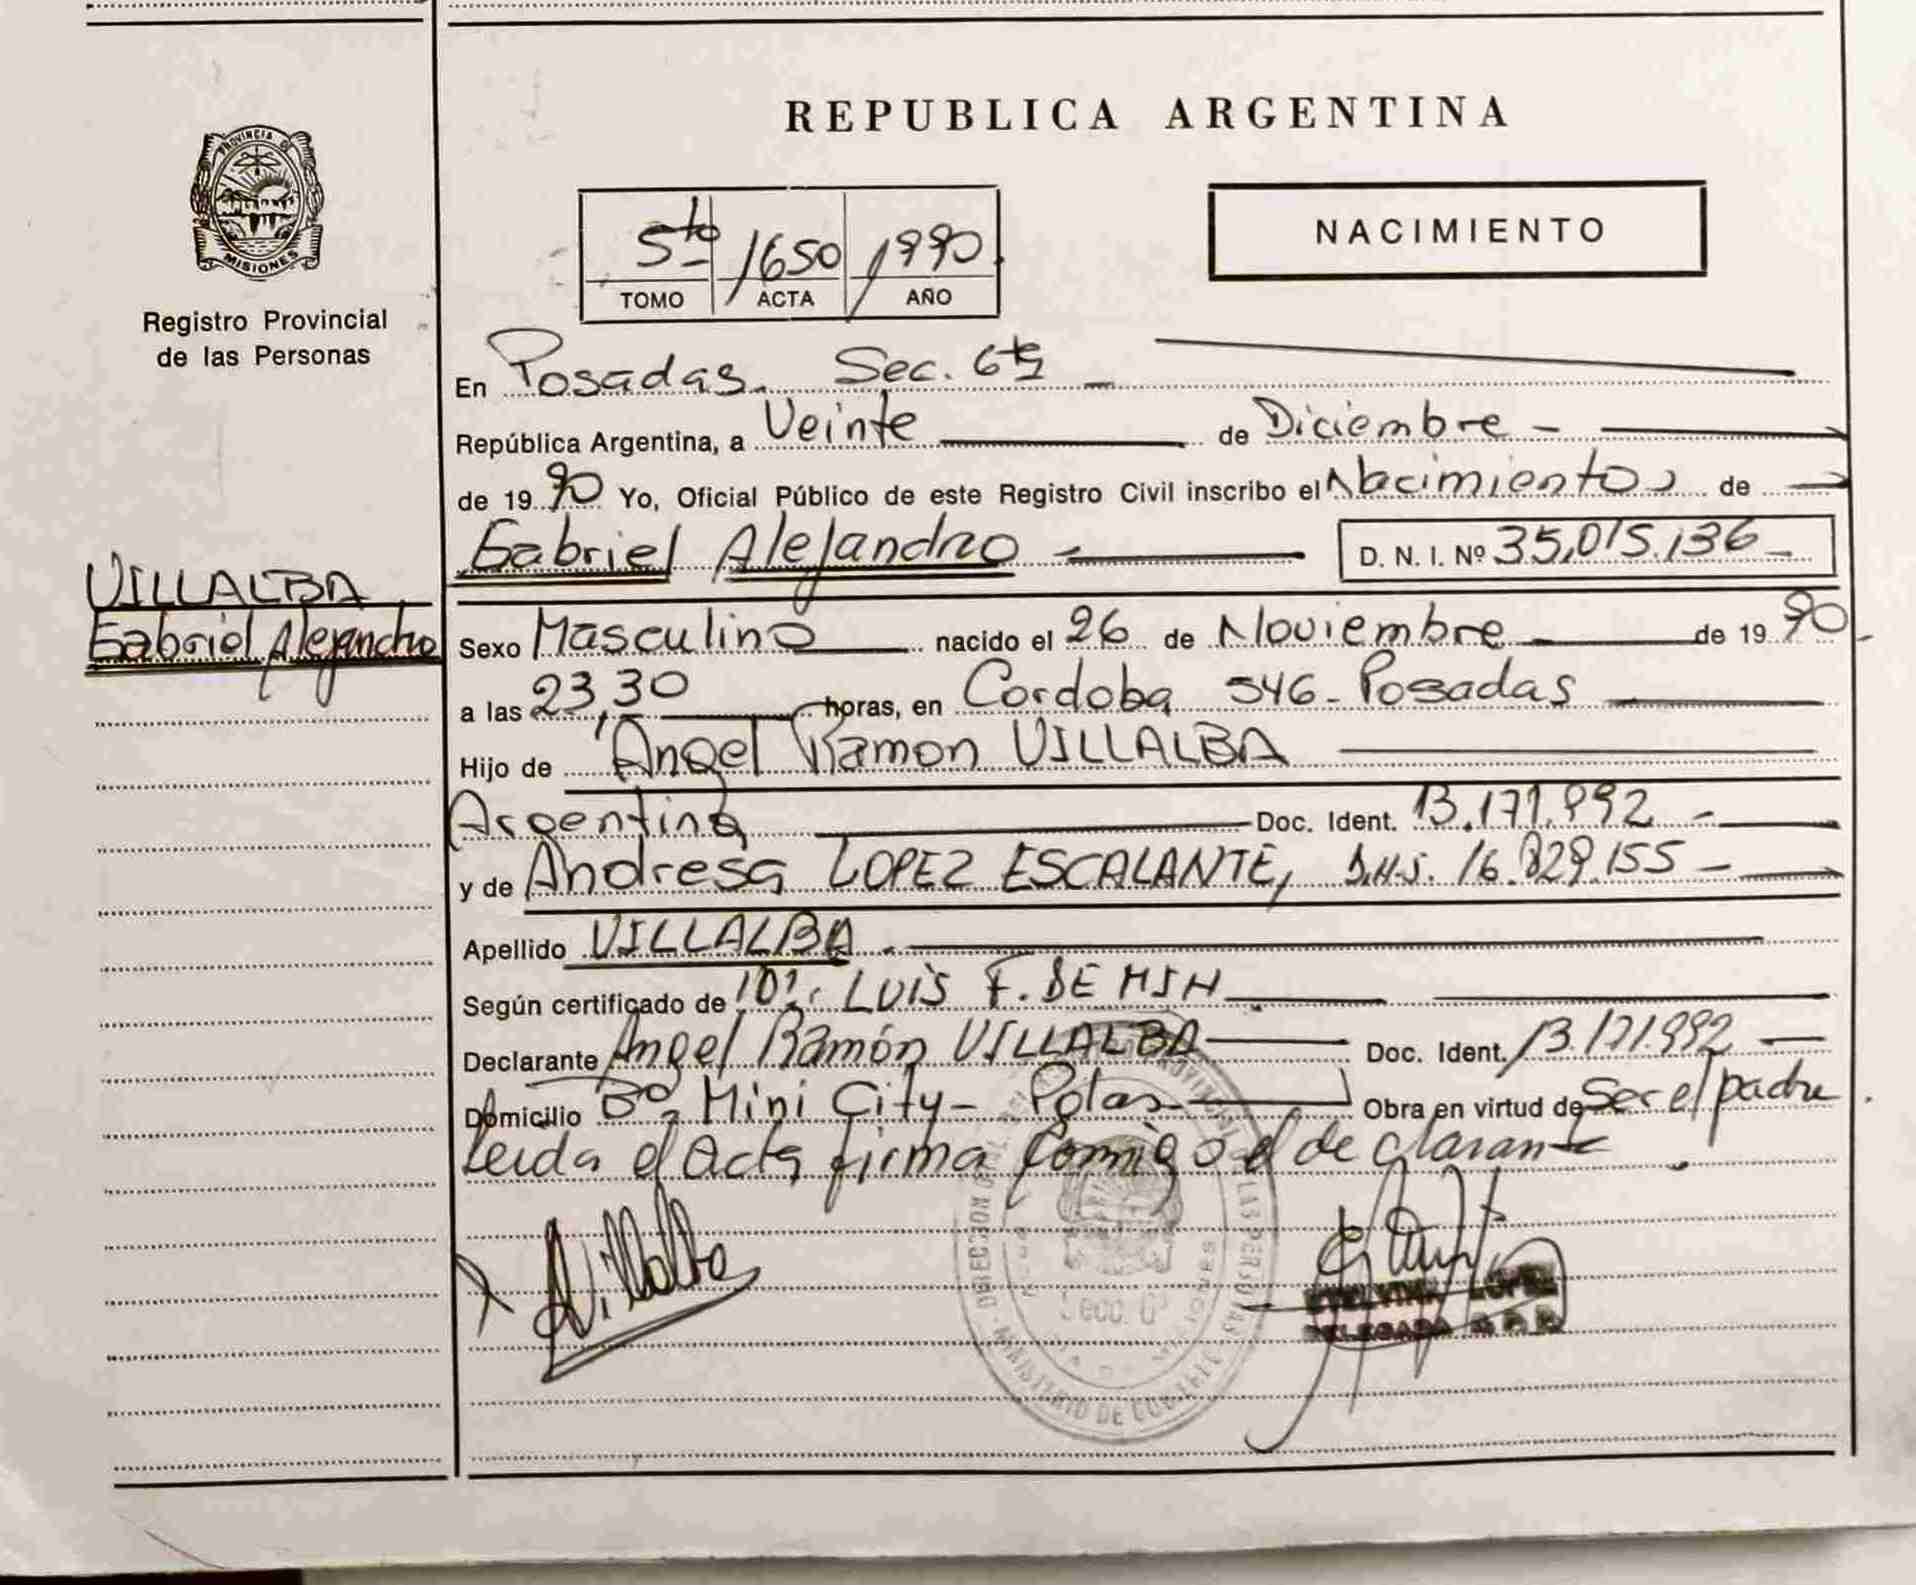 REPUBLICA ARGENTINA
PROVINCIA DE
MISIONES
Registro Provincial
de las Personas
NACIMIENTO
5to 1650 1990
TOMO ACTA AÑO
En Posadas. Sec. 6ta
República Argentina, a Veinte de Diciembre
de 1990 Yo, Oficial Público de este Registro Civil inscribo el Nacimiento de
Gabriel Alejandro D. N. I. Nº 35.015.136
VILLALBA
Gabriel Alejandro
Sexo Masculino nacido el 26 de Noviembre de 1990
a las 23,30 horas, en Cordoba 546 - Posadas
Hijo de Angel Ramon VILLALBA
Argentina Doc. Ident. 13.171.992
y de Andresa LOPEZ ESCALANTE, 16.829.155
Apellido VILLALBA
Según certificado de LUIS F.
Declarante Angel Ramón VILLALBA Doc. Ident. 13.171.992
Domicilio Bº Mini City - Obra en virtud de Ser el padre.
Leida el Acta firma conmigo el declarante.
Villalba
LOPEZ
DELEGADA